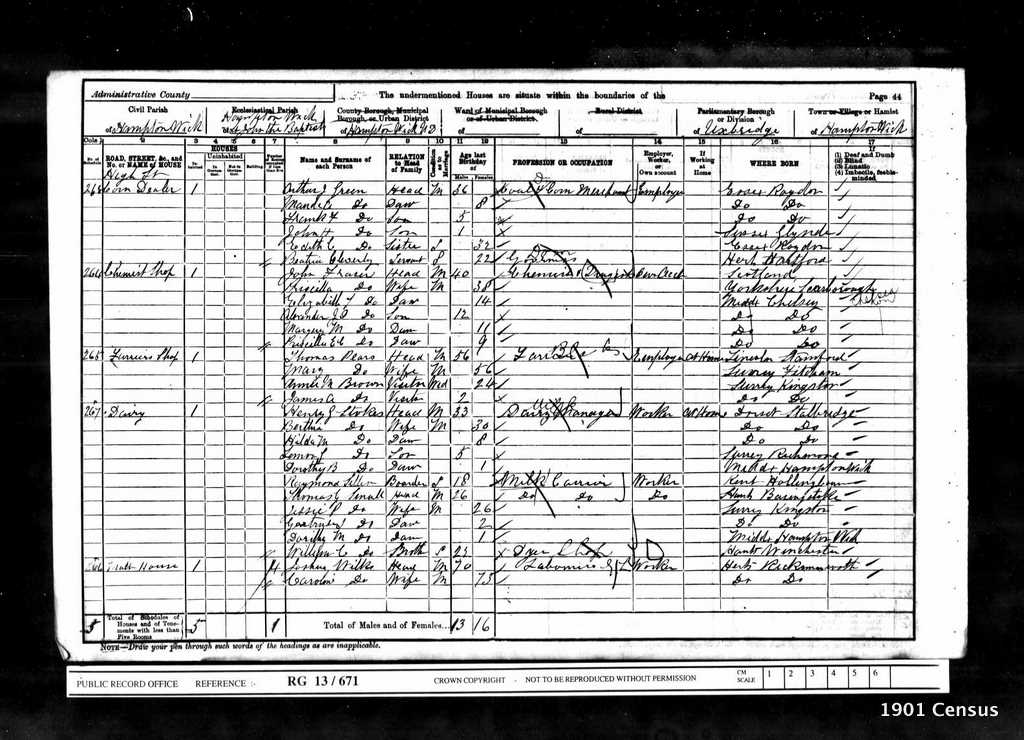 Administrative County
The undermentioned Houses are situate within the boundaries of the
Page 44
Civil Parish
of Hampton Wick
Ecclesiastical Parish
Hampton Wick
of St John the Baptist
County Borough, Municipal Borough, or Urban District
of Hampton Wick U D
Ward of Municipal Borough or of Urban District
of
Rural District
of
Parliamentary Borough or Division
of Uxbridge
Town or Village or Hamlet
of Hampton Wick
ROAD, STREET, &c., and No. or NAME of HOUSE
HOUSES
Uninhabited
Building
Name and Surname of each Person
RELATION to Head of Family
Age last Birthday of
Males Females
PROFESSION OR OCCUPATION
Employer, Worker, or Own account
If Working at Home
WHERE BORN
If
(1) Deaf and Dumb
(2) Blind
(3) Lunatic
(4) Imbecile, feeble-minded
High St
Corn Dealer 1 Arthur J Green Head M 36 Coal & Corn Merchant Employer Essex Roydon
Do Daw 8 Do Do
Frank F Do Son 5 Do Do
John H Do Son 1 Sussex Glynde
Edith C Do Sister S 32 Essex Roydon
Beatrice Servant S 22 Hert Hartford
266 Chemist Shop 1 John Fraser Head M 40 Chemist & Druggist Own Acct Scotland
Priscilla Do Wife M 38 Yorkshire Scarborough
Elizabeth Do Daw 14 Middx Chelsey
Alexander Do Son 12 Do Do
Margery M Do Daw 11 Do Do
Priscilla Do Daw 9 Do Do
Farriers Shop 1 Thomas Pears Head M 56 Farrier Employer At Home Lincoln Stamford
Mary Do Wife M 56 Surrey Fetcham
Annie M Brown Visitor Wid 24 Surrey Kingston
James A Do Visitor 2 Do Do
267 Dairy 1 Henry J Stokes Head M 33 Dairy Manager Worker At Home Dorset Stalbridge
Bertha Do Wife M 30 Do Do
Hilda M Do Daw 8 Do Do
Do Son 5 Surrey Richmond
Dorothy B Do Daw 1 Middx Hampton Wick
Raymond Boarder S 18 Milk Carrier Worker Kent Hollingbourn
Thomas C Small Head M 26 Do Do Do Hants Basingstoke
Jessie P Do Wife M 26 Surrey Kingston
Do Daw 2 Do Do
Dorothy M Do Daw 1 Middx Hampton Wick
William C Do Broth S 23 Hants Winchester
House 1 4 Joshua Wilks Head M 70 Worker Herts Rickmansworth
Caroline Do Wife M 75 Do Do
5 Total of Schedules of Houses and of Tenements with less than Five Rooms 5 1 Total of Males and of Females... 13 16
NOTE—Draw your pen through such words of the headings as are inapplicable.
PUBLIC RECORD OFFICE REFERENCE :- RG 13/671 CROWN COPYRIGHT - NOT TO BE REPRODUCED WITHOUT PERMISSION CM SCALE 1 2 3 4 5 6
1901 Census